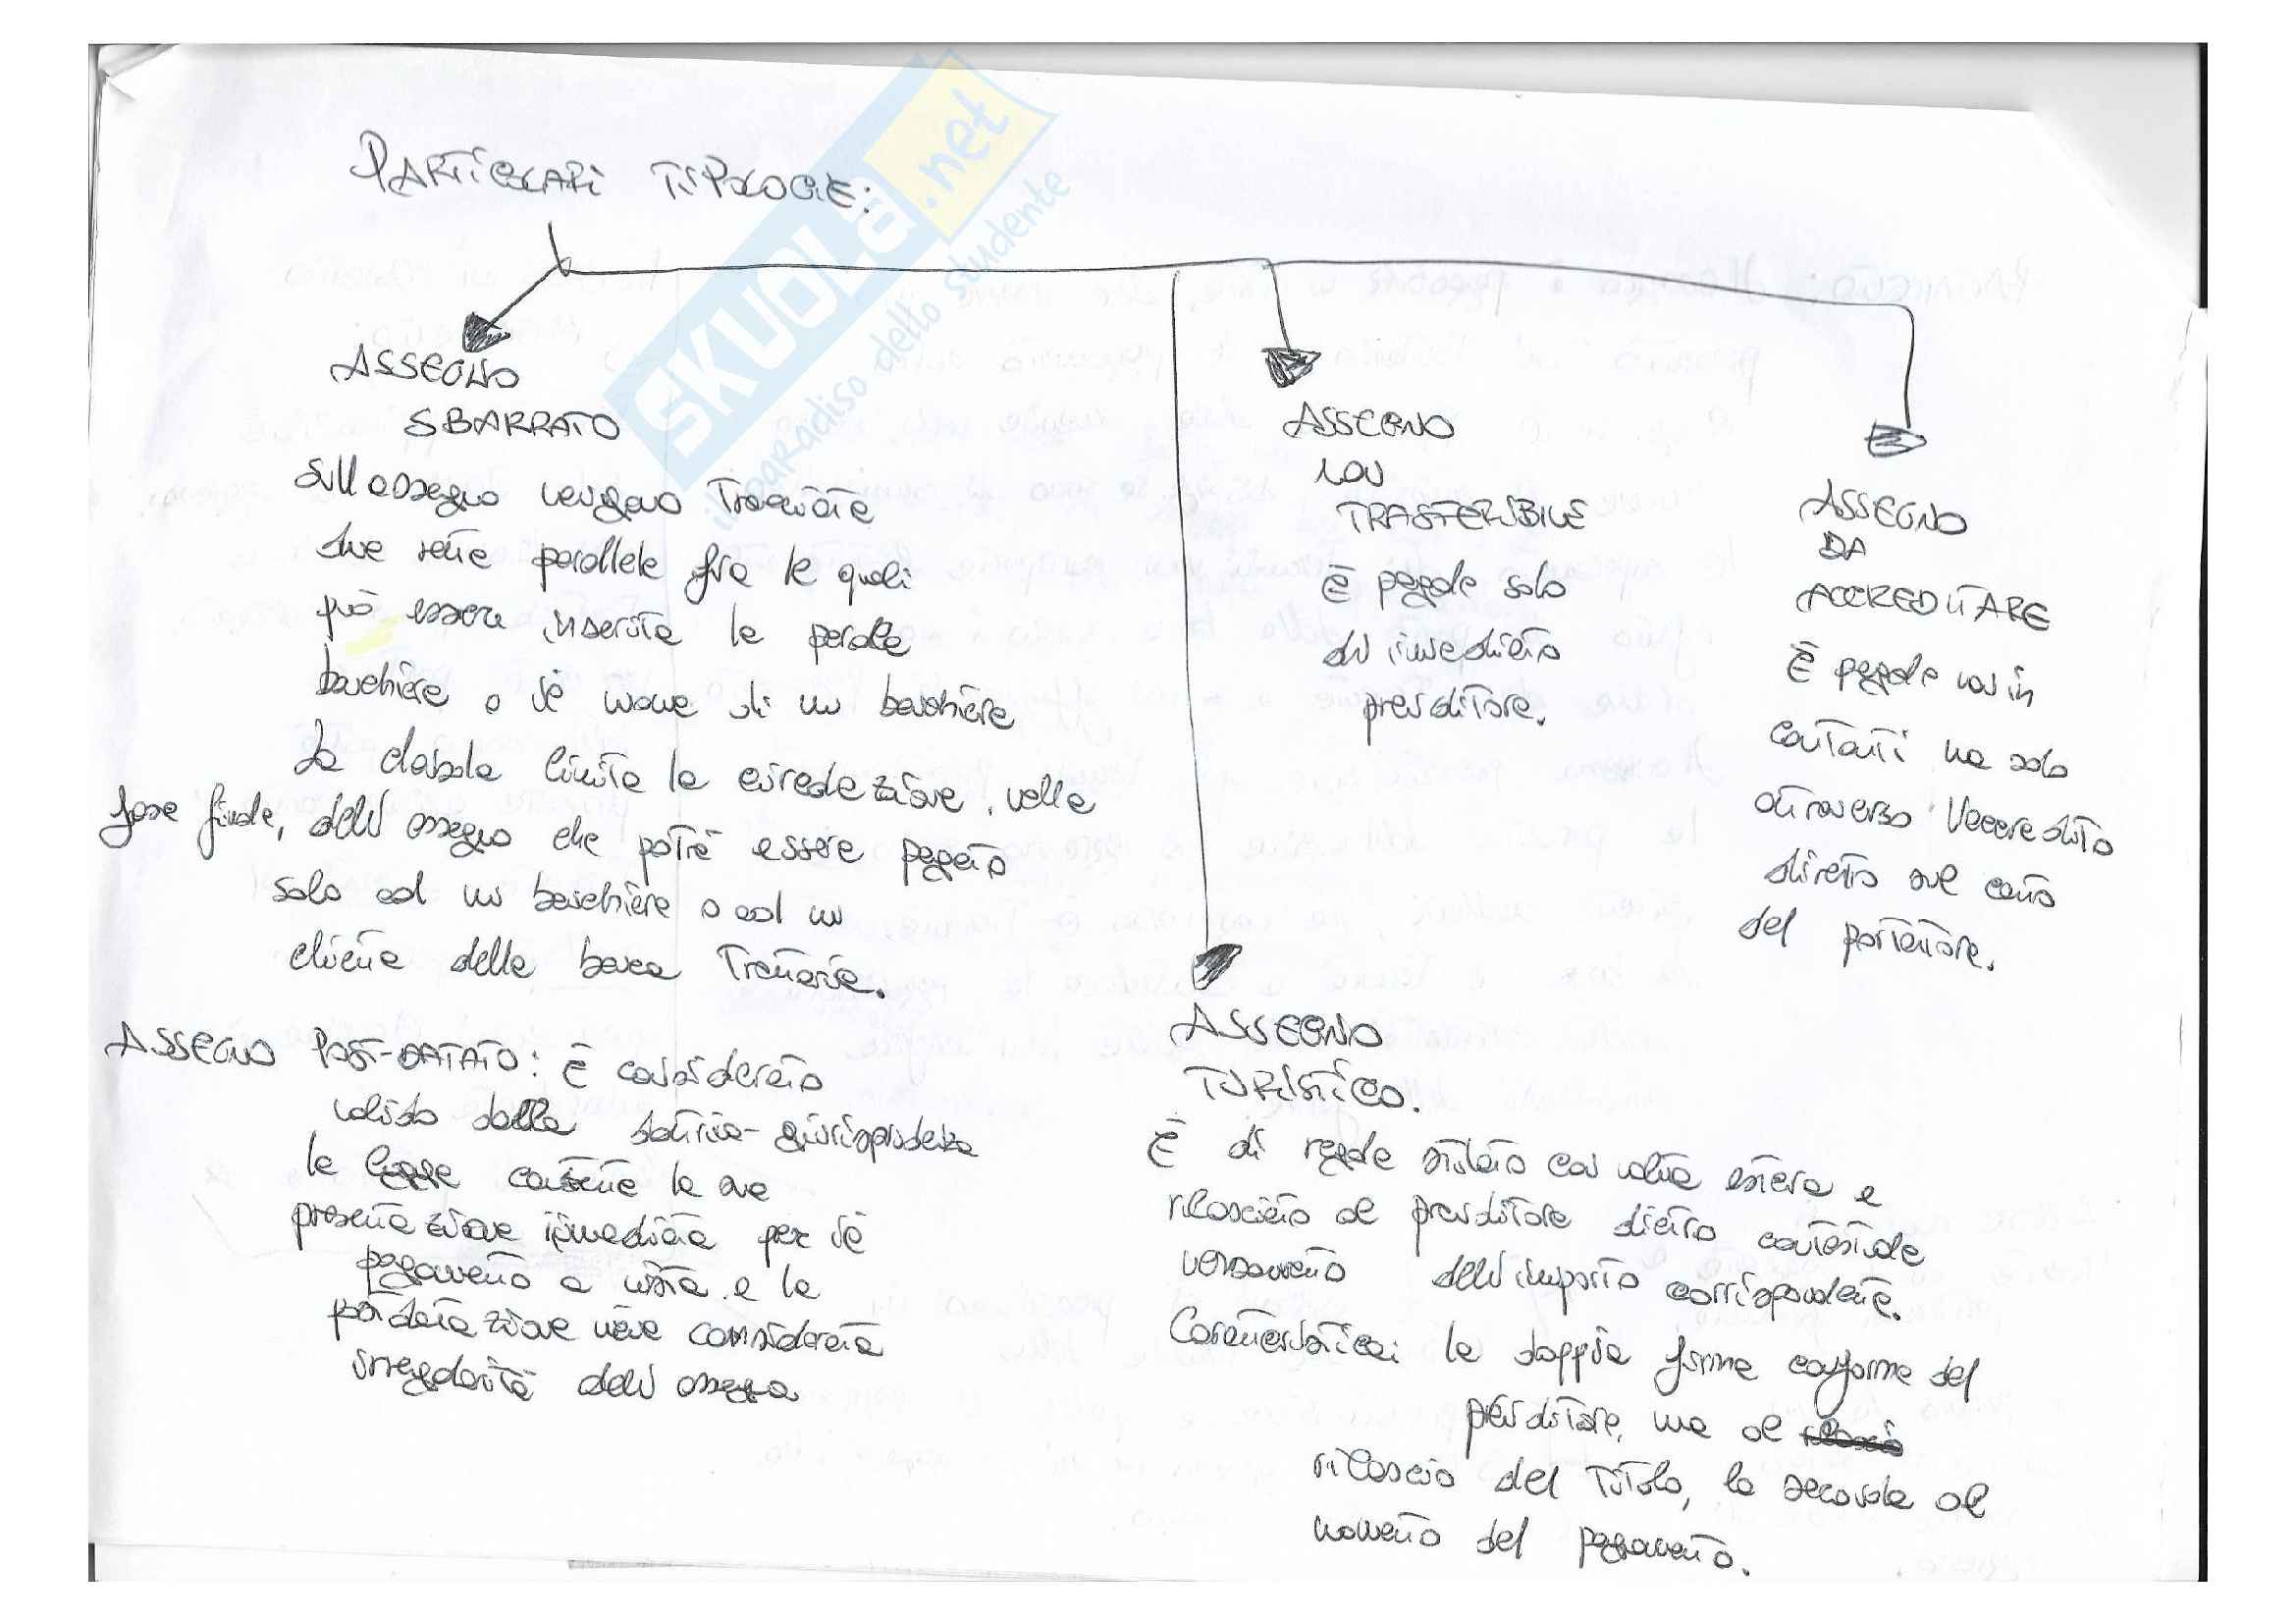 PARTICOLARI TIPOLOGIE:
ASSEGNO
SBARRATO
Sull'assegno vengono tracciate
due rette parallele fra le quali
può essere inserita la parola
banchiere o il nome di un banchiere
La clausola limita la circolazione, nella
fase finale, dell'assegno che potrà essere pagato
solo ad un banchiere o ad un
cliente della banca trattaria.
ASSEGNO POST-DATATO: È considerato
valido dalla dottrina-giurisprudenza
la legge consente la sua
presentazione immediata per il
pagamento a vista e la
postdatazione viene considerata
irregolarità dell'assegno
ASSEGNO
NON
TRASFERIBILE
È pagabile solo
all'immediato
prenditore.
ASSEGNO
DA
ACCREDITARE
È pagabile non in
contanti ma solo
attraverso l'accredito
diretto sul conto
del portatore.
ASSEGNO
TURISTICO.
È di regola stilato con valuta estera e
rilasciato al prenditore dietro contestuale
versamento dell'importo corrispondente.
Caratteristica: la doppia firma conforme del
prenditore, una al rilascio
rilascio del titolo, la seconda al
momento del pagamento.
SKUOLA.net
il paradiso dello studente